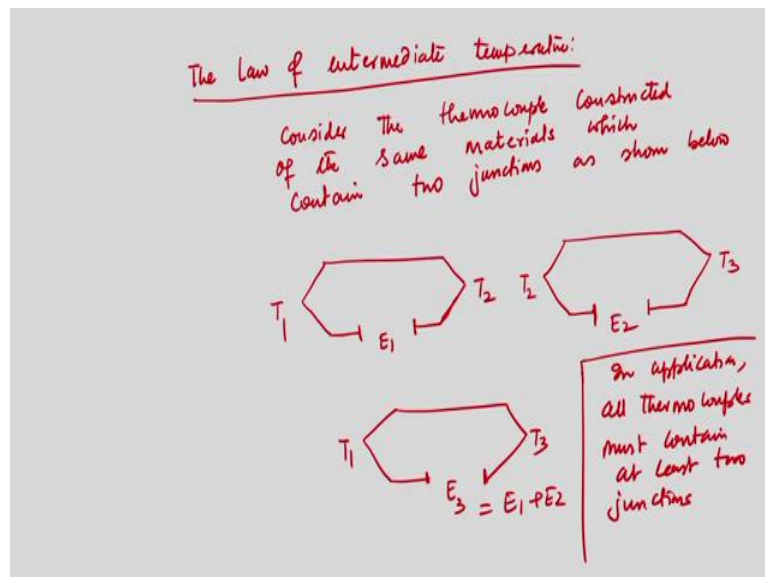 The Law of intermediate temperature:
Consider The thermocouple Constructed
of the same materials which
Contain two junctions as shown below
T1 E1 T2 T2 E2 T3
T1 E3 = E1 + E2 T3
In application,
all thermocouples
must contain
at least two
junctions